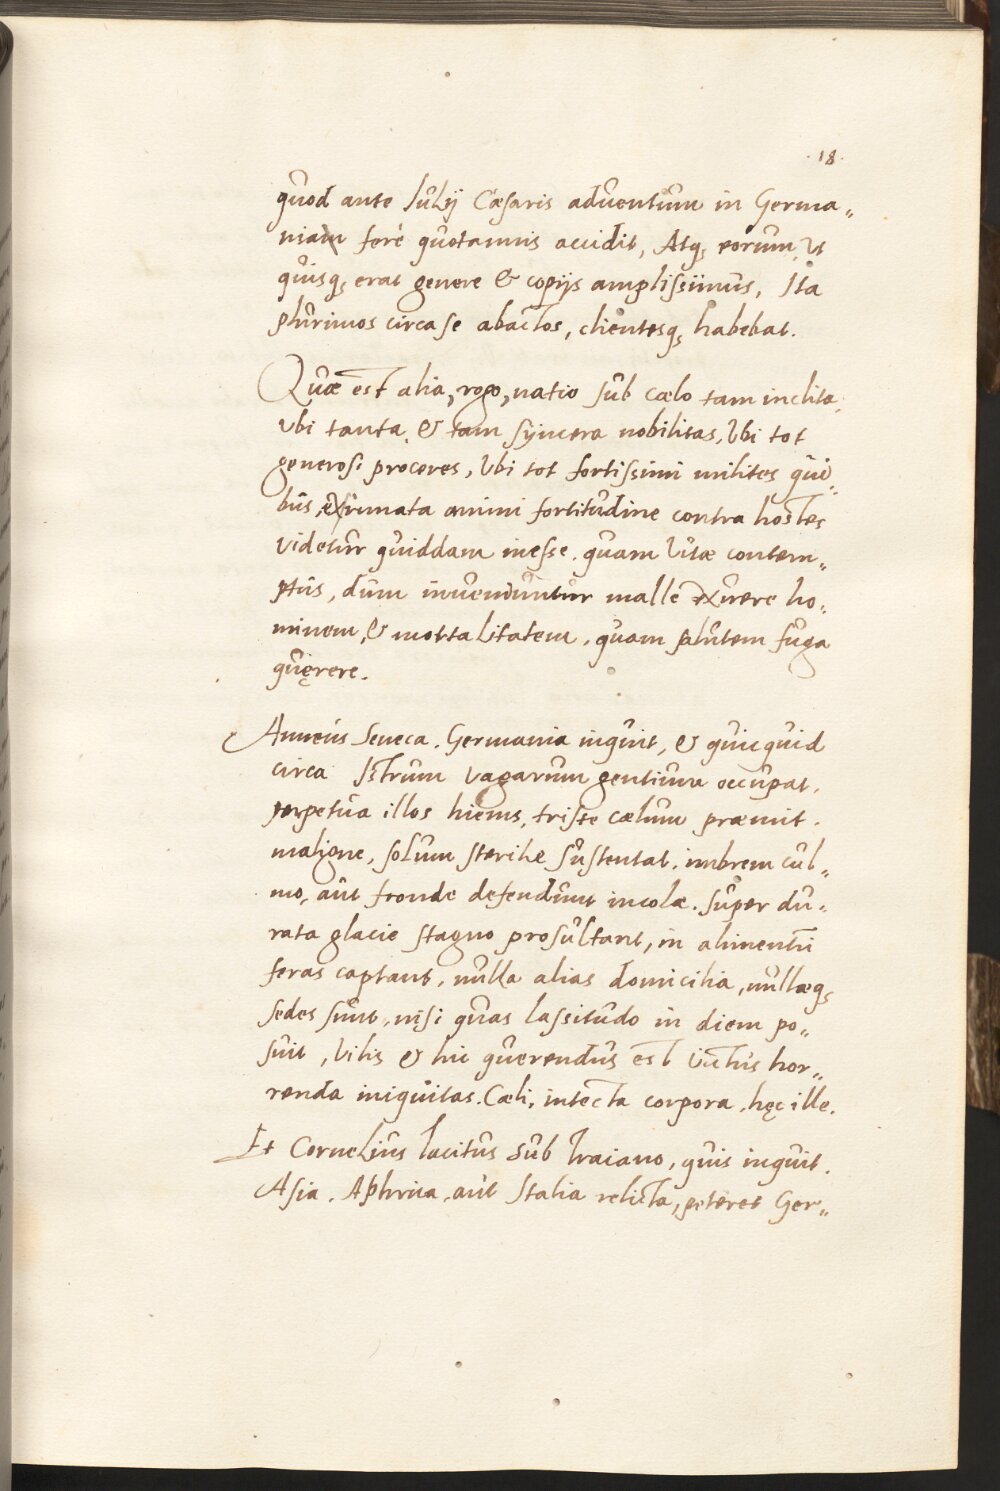 .18.
quod ante Iulij Cæsaris aduentum in Germa„
niam ferè quotannis accidit, Atq; eorum, ut
quisq; erat genere & copijs amplissimus, Ita
plurimos circa se abactos, clientesq; habebat.
Quæ est alia, rogo, natio sub cælo tam inclita,
Vbi tanta, & tam syncera nobilitas, Vbi tot
generosi proceres, Vbi tot fortissimi milites qui„
bus, exfirmata animi fortitudine contra hostes
videtur quiddam inesse. quam Vitæ contem„
ptus, dum inueniuntur malle exuere ho„
minem, & mortalitatem, quam salutem fuga
quęrere.
Anneus Seneca. Germania inquit, & quicquid
circa Istrum vagarum gentium occupat,
perpetua illos hiems, triste cælum præmit.
maligne, solum sterile sustentat. imbrem cul„
mo, aut fronde defendunt incolæ. super du„
rata glacie stagno prosultant, in alimentū
feras captant, nulla alias domicilia, nullæq;
sedes sunt, nisi quas lassitudo in diem po„
suit, Vilis & hic querendus est victus hor„
renda iniquitas. Cæli, intecta corpora, hęc ille.
Et Cornelius Tacitus sub Traiano, quis inquit.
Asia, Aphrica, aut Italia relicta, peteret Ger„